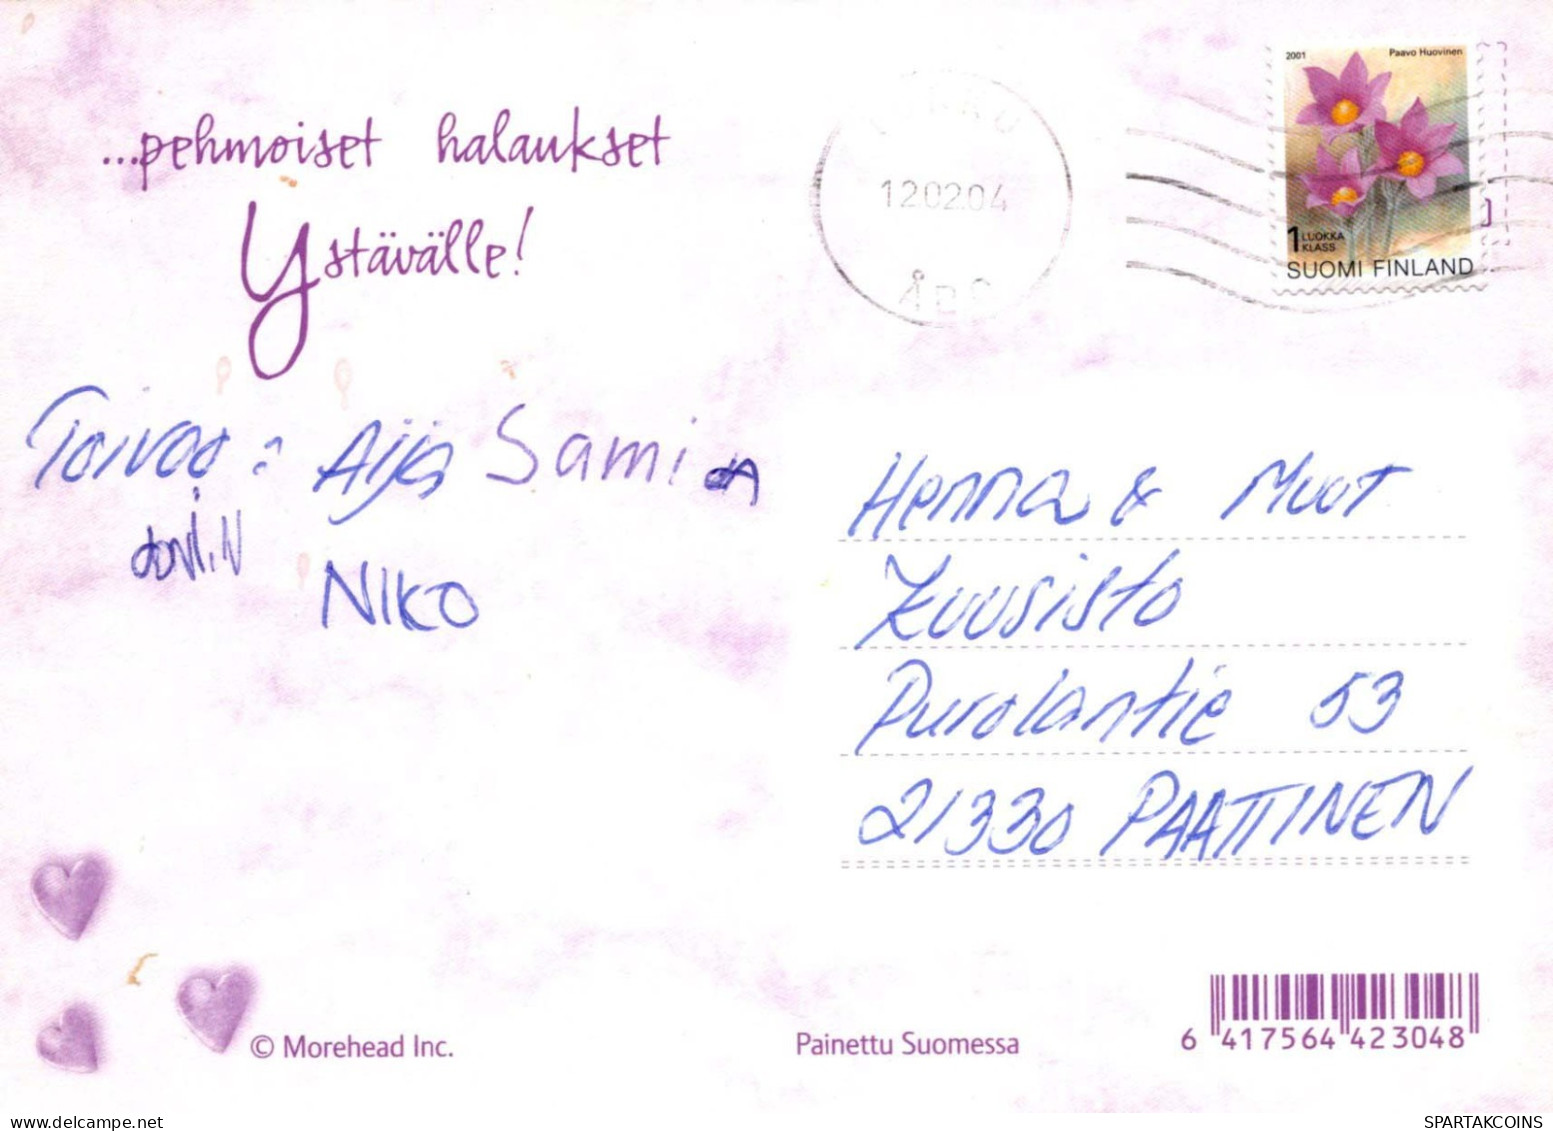 ...pehmoiset halaukset
Ystävälle!
Toivoo: Aija Sami
NIKO
12.02.04
2001 Paavo Huovinen
1 LUOKKA
KLASS
SUOMI FINLAND
Henna & Muot
Kuusisto
Purolantie 53
21330 PAATTINEN
© Morehead Inc.
Painettu Suomessa
6 417564 423048
SPARTAKCOINS